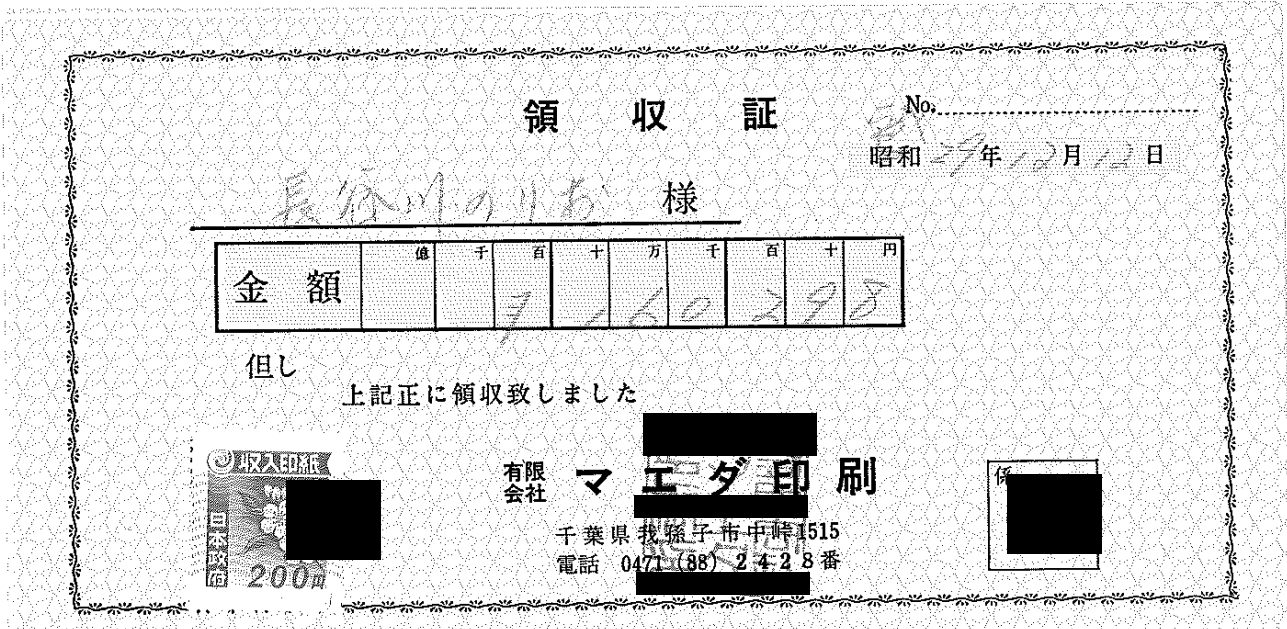 領収証
No.
昭和 年12月12日
長谷川のりお 様
金額 億 千 百 十 万 千 百 十 円
160298
但し
上記正に領収致しました
収入印紙
日本政府
200円
有限会社 マエダ印刷
千葉県我孫子市中峠1515
電話 0471 (88) 2428番
係